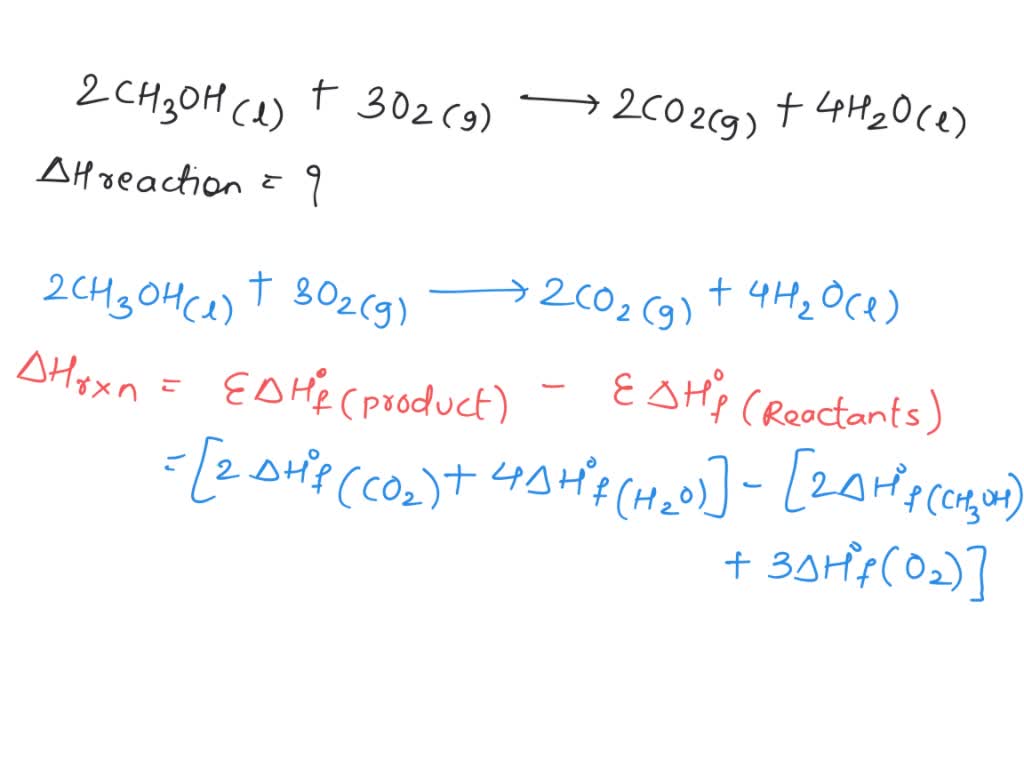 2CH₃OH(l) + 3O₂(g) ⟶ 2CO₂(g) + 4H₂O(l)
ΔH reaction = ?
2CH₃OH(l) + 3O₂(g) ⟶ 2CO₂(g) + 4H₂O(l)
ΔHrxn = ΣΔH°f (product) - ΣΔH°f (Reactants)
= [2ΔH°f(CO₂) + 4ΔH°f(H₂O)] - [2ΔH°f(CH₃OH)
+ 3ΔH°f(O₂)]